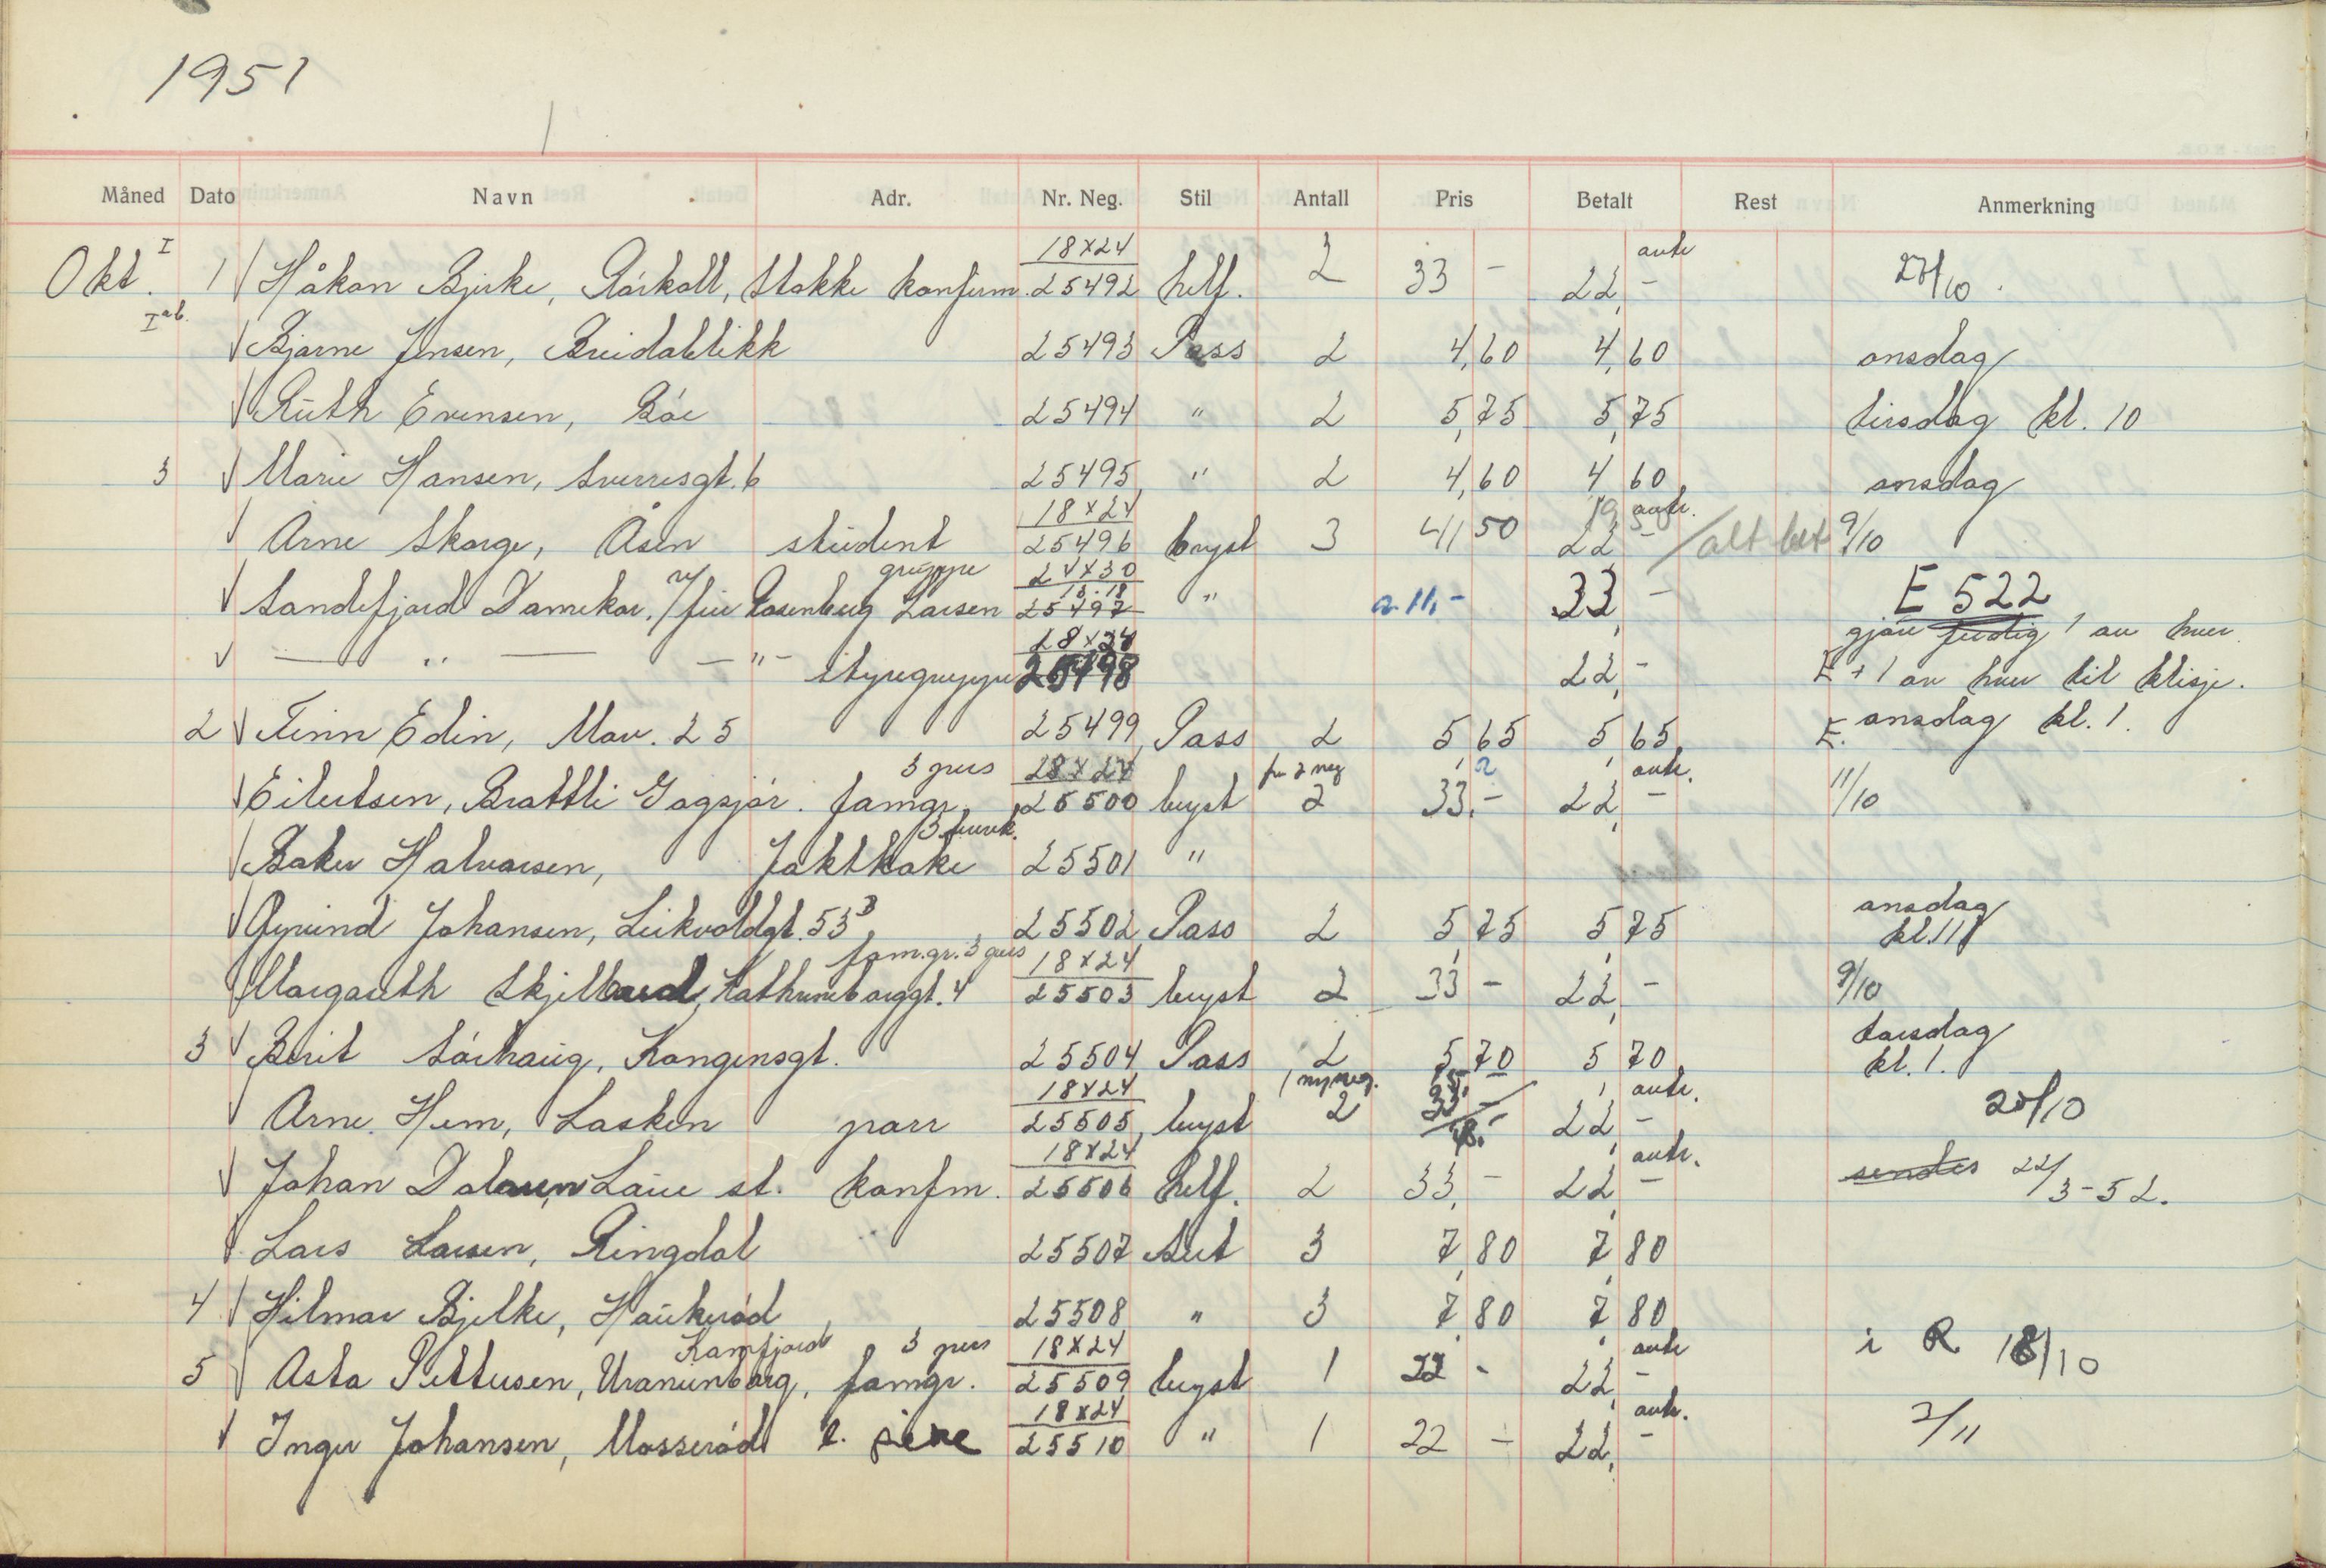 1951
Måned Dato Navn Adr. Nr. Neg. Stil Antall Pris Betalt Rest Anmerkning
I 18x24 antr
Okt. 1 Håkon Bjerke, Råstad, Stokke konfirm. 25492 helf. 2 33 - 22,-
I ab.
Bjarne Jensen, Breidablikk 25493 Pass 2 4,60 4,60 onsdag
Ruth Evensen, Bøe 25494 " 2 5,75 5,75 tirsdag kl. 10
3 Marie Hansen, Sverresgt. 6 25495 " 2 4,60 4 60 onsdag
18x24 antr.
Arne Skorge, Åsen student 25496 bryst 3 41 50 22,- alt bet 9/10
gruppe 24x30
Sandefjord Damekor, v/ fru Rosenberg Larsen 25497 " a 11,- 33,- E 522
18x24 gjøre ferdig 1 av hver
" -"- styregruppe 25498 22,- E + 1 av hver til klisje.
2 Finn Edin, Mov. 25 25499 Pass 2 5,65 5,65 E. onsdag kl. 1.
3 pers 18x24 antr.
Eilertsen, Brattli Gogsjør. famgr. 25500 bryst 2 33,- 22,- 11/10
Baker Halvorsen, Jaktkake 25501 "
Øyvind Johansen, Leikvoldgt. 53B 25502 Pass 2 5,75 5,75 onsdag kl. 11
fam.gr. 3 pers 18x24
Margareth Kathrineborggt. 4 25503 bryst 2 33 - 22,- 9/10
3 Berit Sørhaug, Kongensgt. 25504 Pass 2 5,70 5 70 torsdag kl. 1.
18x24 1 ny neg. antr.
Arne Hem, Lasken parr 25505 bryst 2 22,-
18x24 antr.
Johan Laue st. konfm. 25506 helf. 2 33,- 22,- sendes 22/3-52.
Lars Larsen, Ringdal 25507 Sert 3 7,80 7,80
4 Hilmar Bjelke, Haukerød 25508 " 3 7,80 7,80
Kamfjord 3 pers 18x24 antr
5 Asta Pettersen, Uranienborg, famgr. 25509 bryst 1 22 - 22,- i R 18/10
18x24 antr.
Inger Johansen, Mosserød 25510 " 1 22 - 22,- 2/11